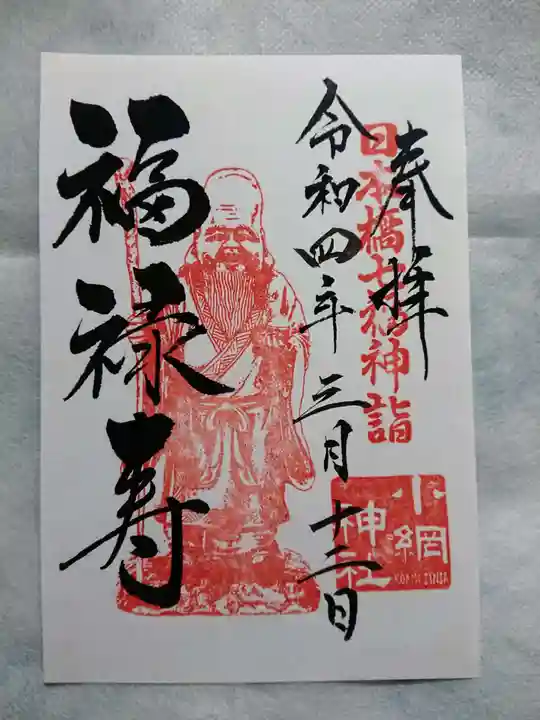 奉拝
日本橋七福神詣
小網
神社
KOAMI JINJA
令和四年三月十二日
福禄寿